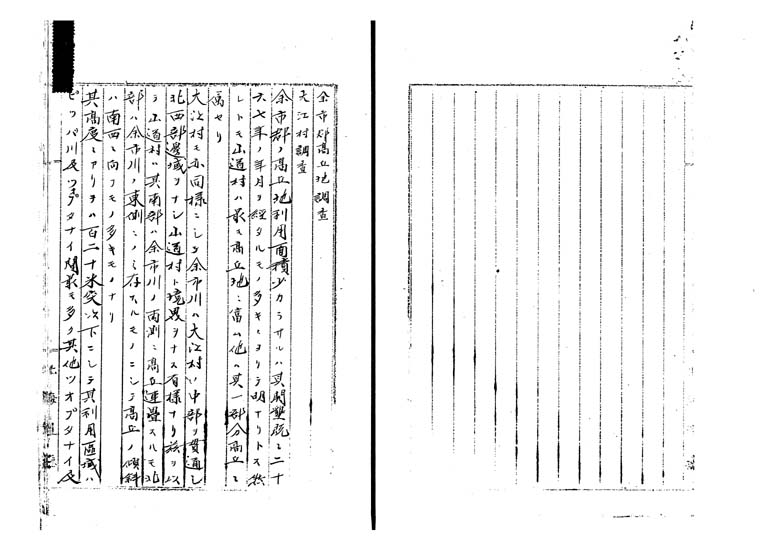 余市郡高丘地調査
大江村調査
余市郡ノ高丘地利用面積少カラサルハ其開墾既ニ二十
六七年ノ年月ヲ経タルモノ多キニヨリテ明ナリトス然
レトモ山道村ハ最モ高丘地ニ富ム他ハ其一部分高丘ニ
属セリ
大江村モ亦同様ニシテ余市川ハ大江村ノ中部ヲ貫通シ
北西部邊域ヲナシ山道村ト境界ヲナス有様ナリ故ヲ以
テ山道村ハ其南部ハ余市川ノ両側ニ高丘連疊スルモ北
部ハ余市川ノ東側ニノミ存スルモノニシテ高丘ノ傾斜
ハ南西ニ向フモノ多キモノナリ
其高度ニアリテハ百二十米突以下ニシテ其利用區域ハ
ビツパ川及ツオプタナイ間最モ多ク其他ツオプタナイ及